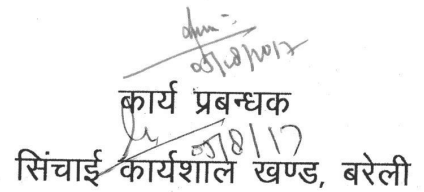 05/8/2017
कार्य प्रबन्धक
05/8/17
सिंचाई कार्यशाला खण्ड, बरेली